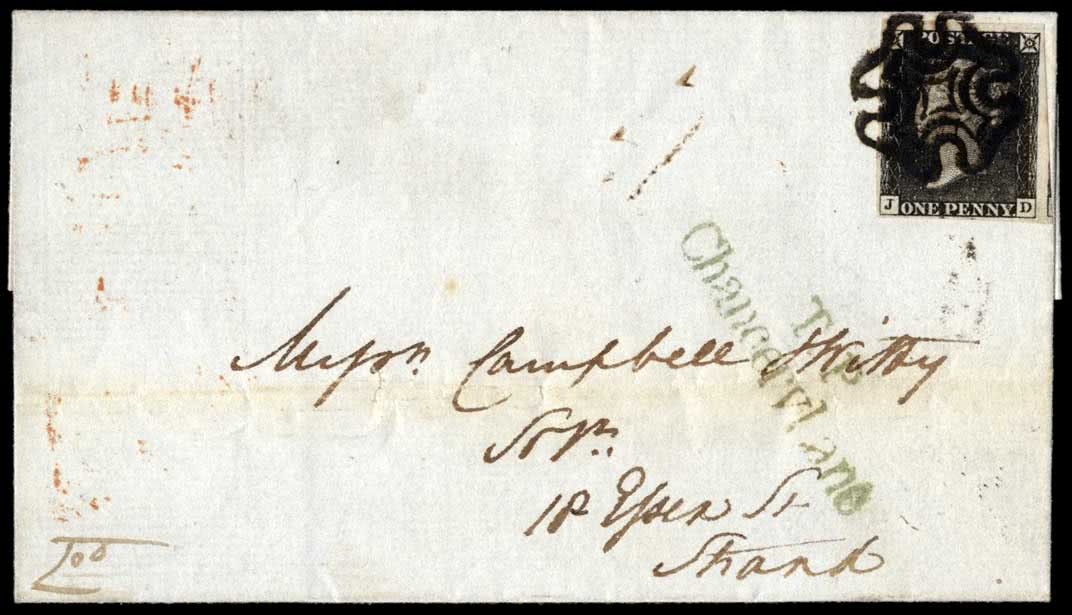 POSTAGE
J ONE PENNY D
T.P
Chancery Lane
Messrs Campbell & Witty
Solrs
18 Essex St
Strand